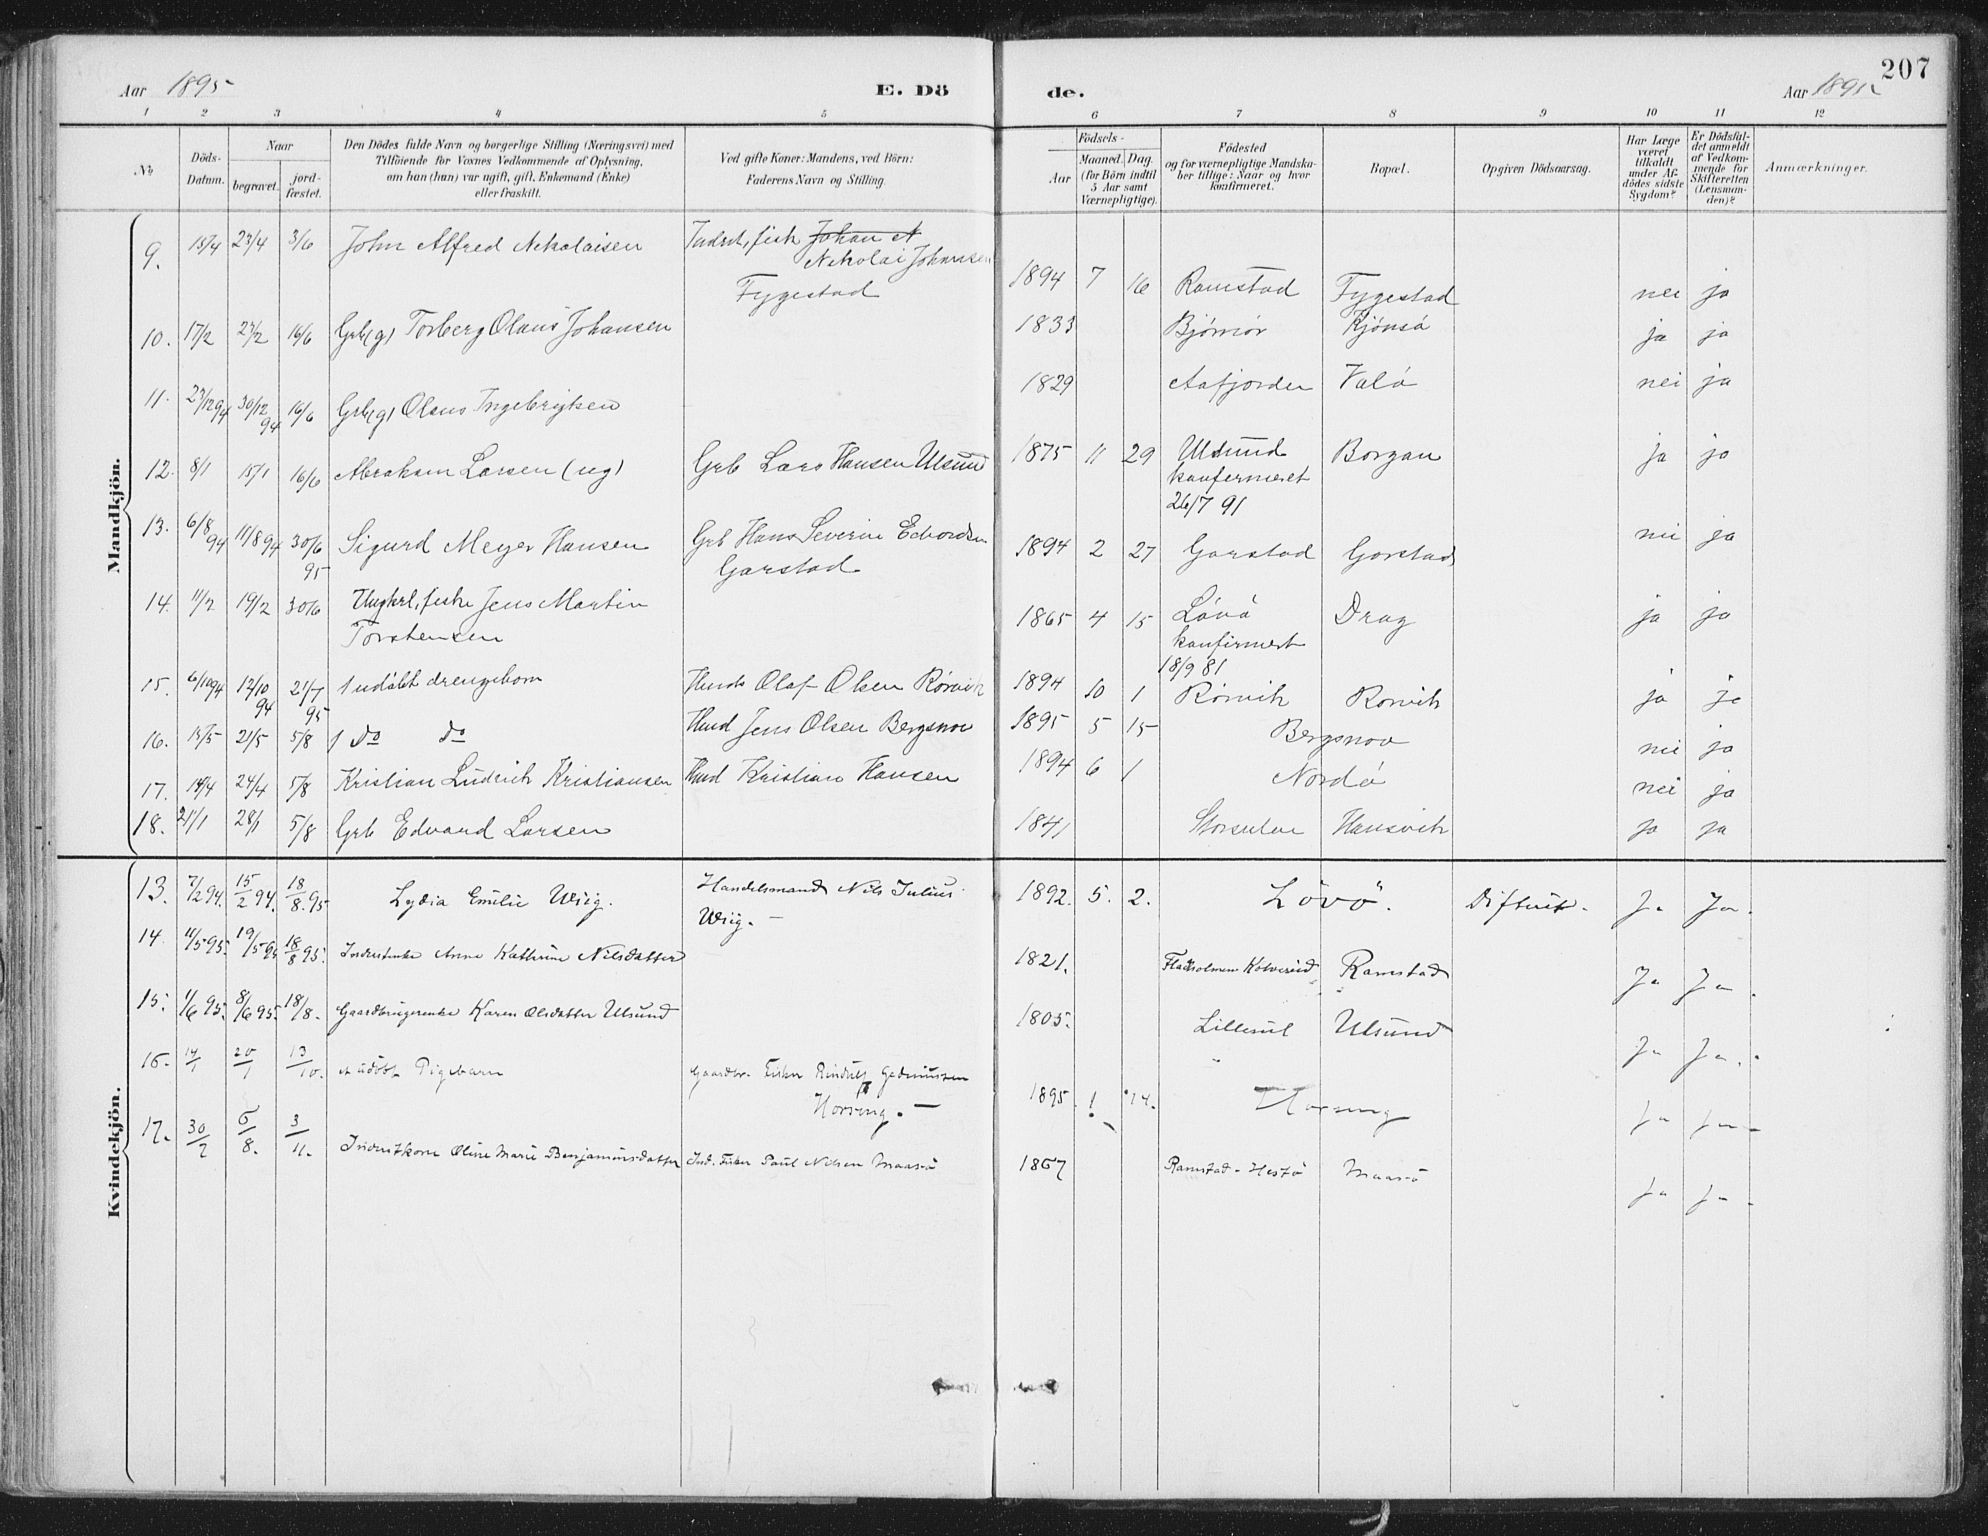 207
Aar 1895 E. Dö
de. Aar 1895
1 2 3 4 5 6 7 8 9 10 11 12
No
Döds-Datum.
Naar
begravet.
jord-fæstet.
Den Dödes fulde Navn og borgerlige Stilling (Næringsvei) med
Tilföiende for Voxnes Vedkommende af Oplysning,
om han (hun) var ugift, gift, Enkemand (Enke)
eller fraskilt.
Ved gifte Koner: Mandens, ved Börn:
Faderens Navn og Stilling.
Födsels-
Aar
Maaned. Dag.
(for Börn indtil
5 Aar samt
Værnepligtige).
Födested
og for værnepligtige Mandska-
ber tillige: Naar og hvor
konfirmeret.
Bopæl.
Opgiven Dödsaarsag.
Har Læge
været
tilkaldt
under Af-
dödes sidste
Sygdom?
Er Dödsfal-
det anmeldt
af Vedkom-
mende for
Skifteretten
(Lensman-
den)?
Anmærkninger.
Mandkjön.
9. 15/4 23/4 3/6 John Alfred Nikolaisen Inderst, fisk Johan N
Nikolai Johansen
Fygestad 1894 7 16 Ramstad Fygestad nei ja
10. 17/2 27/2 16/6 Grb(g) Torberg Olaus Johansen 1833 Bjørnør Kjønsø ja ja
11. 23/12 94 30/12 94 16/6 Grb(g) Olaus Ingebrigtsen 1829 Aafjorden Valø nei ja
12. 8/1 15/1 16/6 Abraham Larsen (ug) Grb Lars Hansen Ulsund 1875 11 29 Ulsund Borgan ja ja
konfirmeret
26/7 91
13. 6/8 94 11/8 94 30/6 95 Sigurd Meyer Hansen Grb Hans Severin Edvardsen
Garstad 1894 2 27 Garstad Garstad nei ja
14. 11/2 19/2 30/6 Ungkrl, fisker Jens Martin
Torstensen 1865 4 15 Løvø Drag ja ja
konfirmert
18/9 81
15. 6/10 94 12/10 94 21/7 95 1 udøbt drengebarn Husb Olaf Olsen Rørvik 1894 10 1 Rørvik Rørvik ja ja
16. 15/5 21/5 5/8 1 do do Husd Jens Olsen Bergsnov 1895 5 15 Bergsnov nei ja
17. 14/4 24/4 5/8 Kristian Ludvik Kristiansen Husd Kristian Hansen 1894 6 1 Nordø nei ja
18. 21/1 28/1 5/8 Grb Edvard Larsen 1841 Hansvik ja ja
Kvindekjön.
13. 7/2 94. 15/2 94. 18/8 95 Lydia Emilie Wiig. Handelsmand Nils Julius
Wiig. — 1892. 5. 2. Lövö. Difterit. Ja Ja.
14. 11/5 95. 19/5 95 18/8 95. Inderstenke Anne Kathrine Nilsdatter 1821. Fladholmen Kolvereid Ramstad Ja Ja.
15. 1/6 95. 8/6 95. 18/8. Gaardbrugerenke Karen Olsdatter Ulsund 1805. Ulsund Ja Ja.
16. 14/1 20/1 13/10. et udöbt Pigebarn Gaardbr. Fisker
Horseng. — 1895. 1. 14. Horseng Ja Ja
17. 30/7 6/8. 3/11. Inderstkone Oline Marie Benjaminsdatter Ind. Fisker Paul Nilsen Maasö 1867 Ramstad - Hestö Maasö Ja Ja